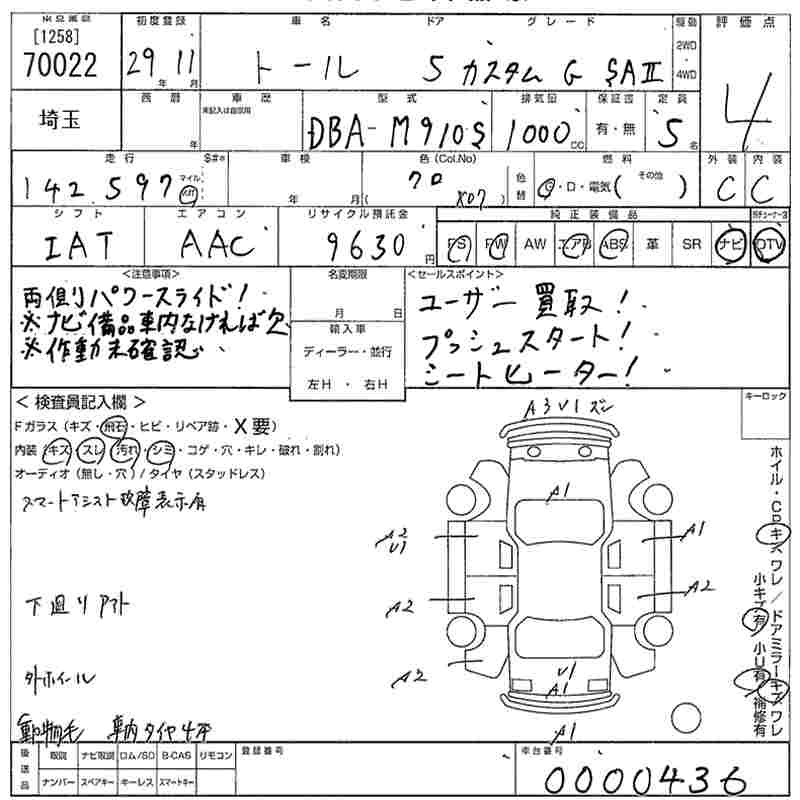 [1258]
70022
初度登録
29年11月
車名
ドア
グレード
トール 5 カスタムG SAⅡ
駆動
2WD
4WD
評価点
4
埼玉
西暦
年
車歴
未記入は自家用
型式
DBA-M910S
排気量
1000cc
保証書
有・無
定員
5名
走行
142,597
マイル
$#*
車検
年 月
色(Col.No)
クロ X07
色替
燃料
G・D・電気( その他 )
外装
C
内装
C
シフト
IAT
エアコン
AAC
リサイクル預託金
9630円
純正装備品
PS PW AW エアB ABS 革 SR ナビ DTV
<注意事項>
両側パワースライド!
※ナビ備品車内なければ欠
※作動未確認
名変期限
月 日
輸入車
ディーラー・並行
左H・右H
<セールスポイント>
ユーザー買取!
プッシュスタート!
シートヒーター!
<検査員記入欄>
Fガラス(キズ・飛石・ヒビ・リペア跡・X要)
内装(キズ・スレ・汚れ・シミ・コゲ・穴・キレ・破れ・割れ)
オーディオ(無し・穴)/タイヤ(スタッドレス)
スマートアシスト故障表示有
下廻り アト
外ホイール
動物毛 車内タイヤ4本
キーロック
A3V1ズレ
A1
A2
U1
A1
A2
A2
A2
U1
A1
A1
ホイル・CPキズワレ/ドアミラーキズワレ
小キズ有 小U有 補修有
後送品
取説 ナビ取説 ロム/SD B-CAS リモコン
ナンバー スペアキー キーレス スマートキー
登録番号
車台番号
0000436